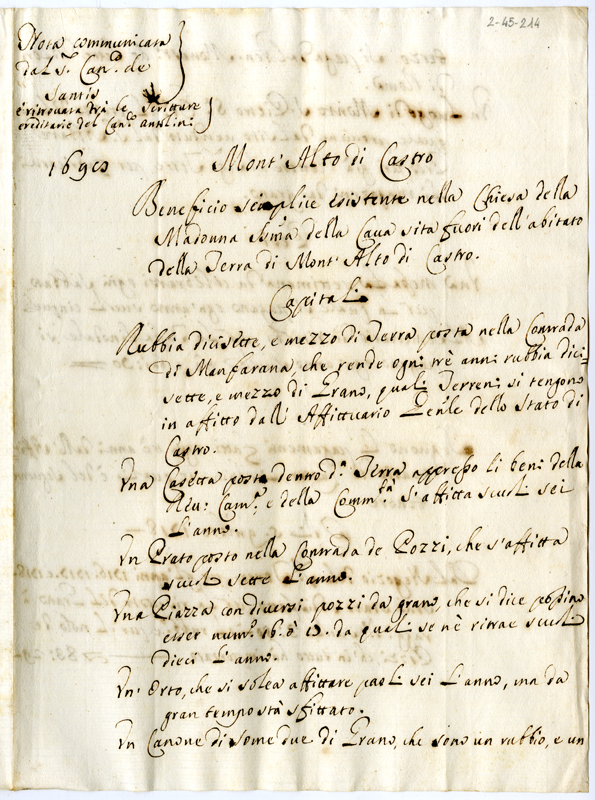 2-45-214
Nota communicata
dal S.r Can.co de
Santis
è ritrovata trà le Scritture
ereditarie del Can.co
1690
Mont'Alto di Castro
Beneficio semplice esistente nella Chiesa della
Madonna SS.ma della Caua sita fuori dell'abitato
della Terra di Mont'Alto di Castro.
Capitali
Rubbia dicisette, e mezzo di Terra posta nella Contrada
di Manfarana, che rende ogni trè anni rubbia dici=
sette, e mezzo di Grano, quali Terreni si tengono
in affitto dall'Affittuario Gen'le dello Stato di
Castro.
Una Casetta posta dentro d.a Terra appresso li beni della
Cam.a e della Comm.tà s'affitta scudi sei
l'anno.
Un Prato posto nella Contrada de Pozzi, che s'affitta
scudi sette l'anno.
Una Piazza con diversi pozzi da grano, che si dice possino
esser num.o 16. ò da quali se nè ritrae scudi
dieci l'anno.
Un' Orto, che si solea affittare paoli sei l'anno, ma da
gran tempo stà sfittato.
Un Canone di some due di Grano, che sono un rubbio, e un